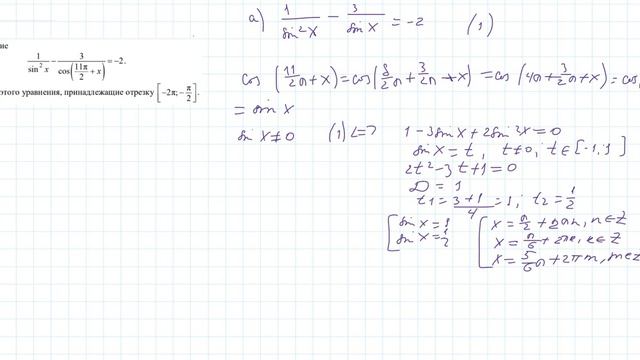 ие
1/sin² x − 3/cos(11π/2 + x) = −2.
этого уравнения, принадлежащие отрезку [−2π; −π/2].
а) 1/sin²x − 3/sin x = −2 (1)
cos (11/2 π + x) = cos(8/2 π + 3/2 π + x) = cos (4π + 3/2 π + x) = cos
= sin x
sin x ≠ 0 (1) <=> 1 − 3sin x + 2sin²x = 0
sin x = t, t ≠ 0, t ∈ [-1, 1]
2t² − 3t + 1 = 0
D = 1
t1 = (3 + 1)/4 = 1; t2 = 1/2
[ sin x = 1
sin x = 1/2
[ x = π/2 + 2πn, n ∈ Z
x = π/6 + 2πk, k ∈ Z
x = 5/6 π + 2πm, m ∈ Z